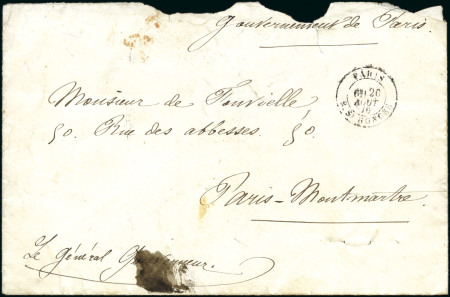 Gouvernement de Paris.
PARIS
6E 26
AOUT
70
R. ST HONORE
Monsieur de Fonvielle
50. Rue des abbesses. 50.
Paris-Montmartre
Le Général Gouverneur.